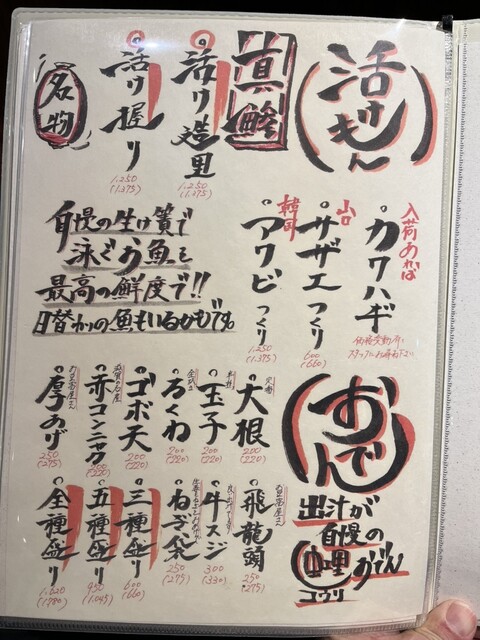 活けもん
真鯵
活け造里
1.250
(1.375)
活け握り
1.250
(1.375)
名物
入荷あれば
カワハギ
価格変動有り
スタッフにお尋ね下さい
山口
サザエつくり
600
(660)
韓国
アワビつくり
1.250
(1.375)
自慢の生け簀で
泳ぐお魚を
最高の鮮度で!!
日替わりの魚もいるかもです。
おでん
出汁が
自慢の
おでん
ユウリ
定番
大根
200
(220)
玉子
200
(220)
ちくわ
200
(220)
ゴボ天
200
(220)
滋賀の名産
赤コンニャク
(220)
お豆腐屋さん
厚あげ
250
(275)
お豆腐屋さん
飛龍頭
250
(275)
牛スジ
300
(330)
ねぎ袋
250
(275)
三種盛り
600
(660)
五種盛り
950
(1.045)
全種盛り
(1.780)